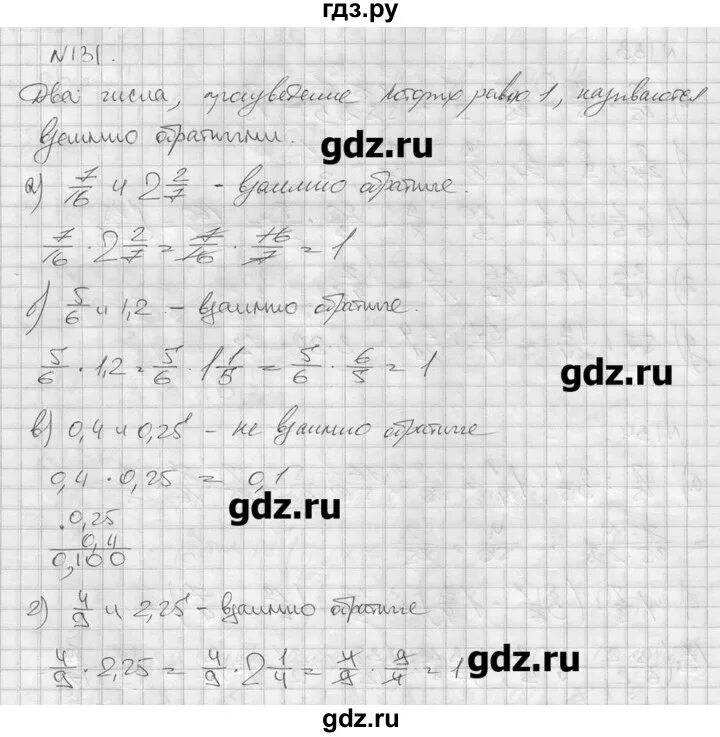 гдз.ру
№131.
Два числа, произведение которых равно 1, называются
взаимно обратными.
gdz.ru
а) 7/16 и 2 2/7 - взаимно обратные.
7/16 · 2 2/7 = 7/16 · 16/7 = 1
б) 5/6 и 1,2 - взаимно обратные.
5/6 · 1,2 = 5/6 · 1 1/5 = 5/6 · 6/5 = 1
gdz.ru
в) 0,4 и 0,25 - не взаимно обратные
0,4 · 0,25 = 0,1
gdz.ru
·0,25
0,4
0,100
г) 4/9 и 2,25 - взаимно обратные
4/9 · 2,25 = 4/9 · 2 1/4 = 4/9 · 9/4 = 1
gdz.ru
gdz.ru